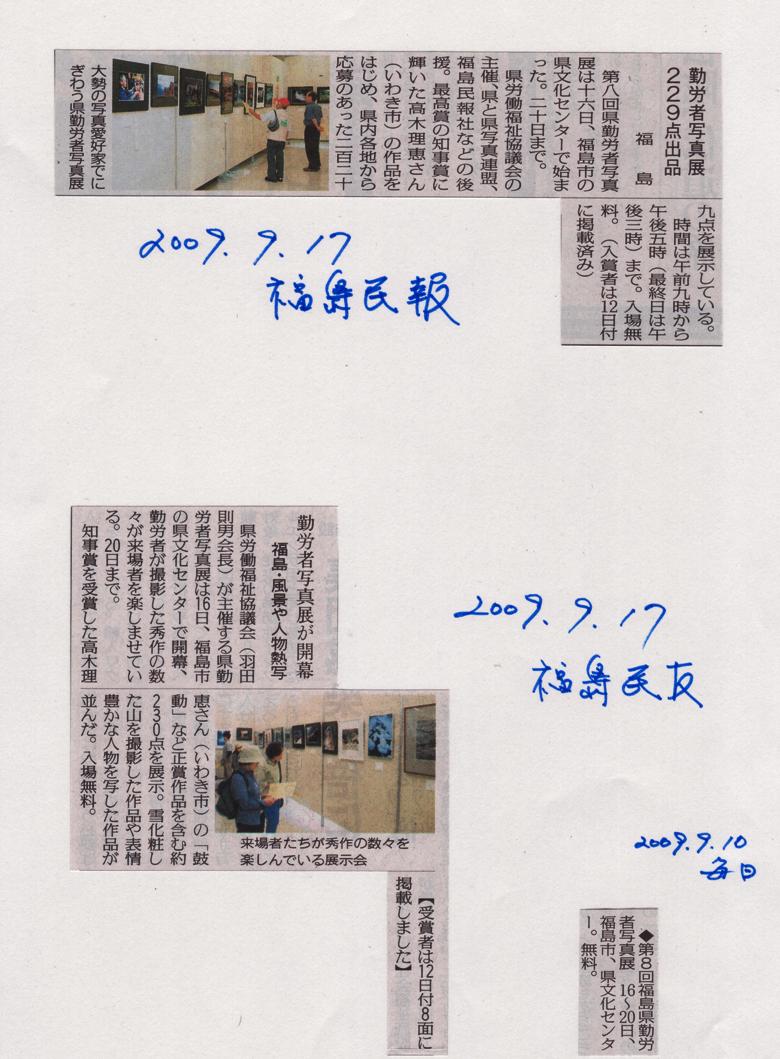 勤労者写真展
229点出品
福島
第八回県勤労者写真
展は十六日、福島市の
県文化センターで始ま
った。二十日まで。
県労働福祉協議会の
主催、県と県写真連盟、
福島民報社などの後
援。最高賞の知事賞に
輝いた高木理恵さん
（いわき市）の作品を
はじめ、県内各地から
応募のあった二百二十
大勢の写真愛好家でに
ぎわう県勤労者写真展
九点を展示している。
時間は午前九時から
午後五時（最終日は午
後三時）まで。入場無
料。（入賞者は12日付
に掲載済み）
2009.9.17
福島民報
勤労者写真展が開幕
福島・風景や人物熱写
県労働福祉協議会（羽田
則男会長）が主催する県勤
労者写真展は16日、福島市
の県文化センターで開幕、
勤労者が撮影した秀作の数
々が来場者を楽しませてい
る。20日まで。
知事賞を受賞した高木理
恵さん（いわき市）の「鼓
動」など正賞作品を含む約
230点を展示。雪化粧し
た山を撮影した作品や表情
豊かな人物を写した作品が
並んだ。入場無料。
来場者たちが秀作の数々を
楽しんでいる展示会
【受賞者は12日付8面に
掲載しました】
2009.9.17
福島民友
2009.9.10
毎日
◆第8回福島県勤労
者写真展 16〜20日、
福島市、県文化センタ
ー。無料。